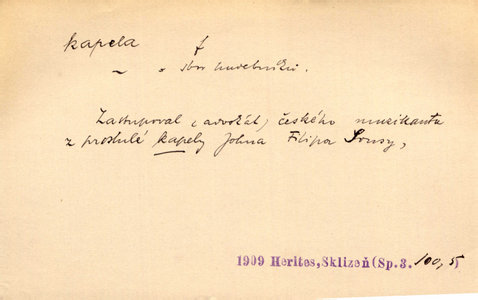 kapela f
~ „ sbor hudebníků.
Zastupoval (advokát) českého muzikanta
z proslulé kapely Johna Filipa Sousy,
1909 Herites, Sklizeň (Sp.3. 100, 5